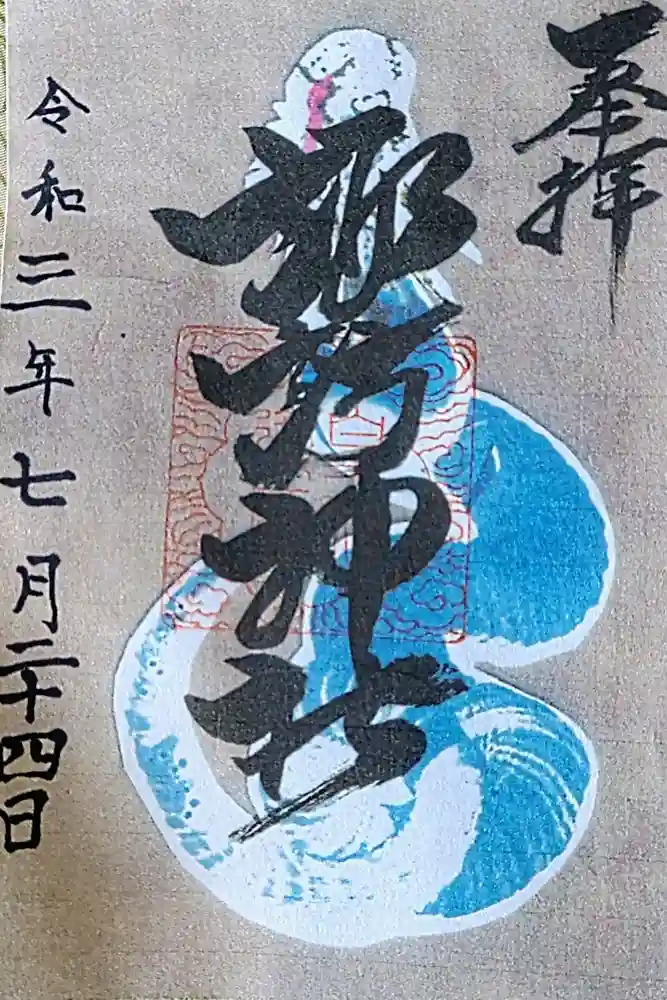 奉拝
諏訪神社
令和三年七月二十四日